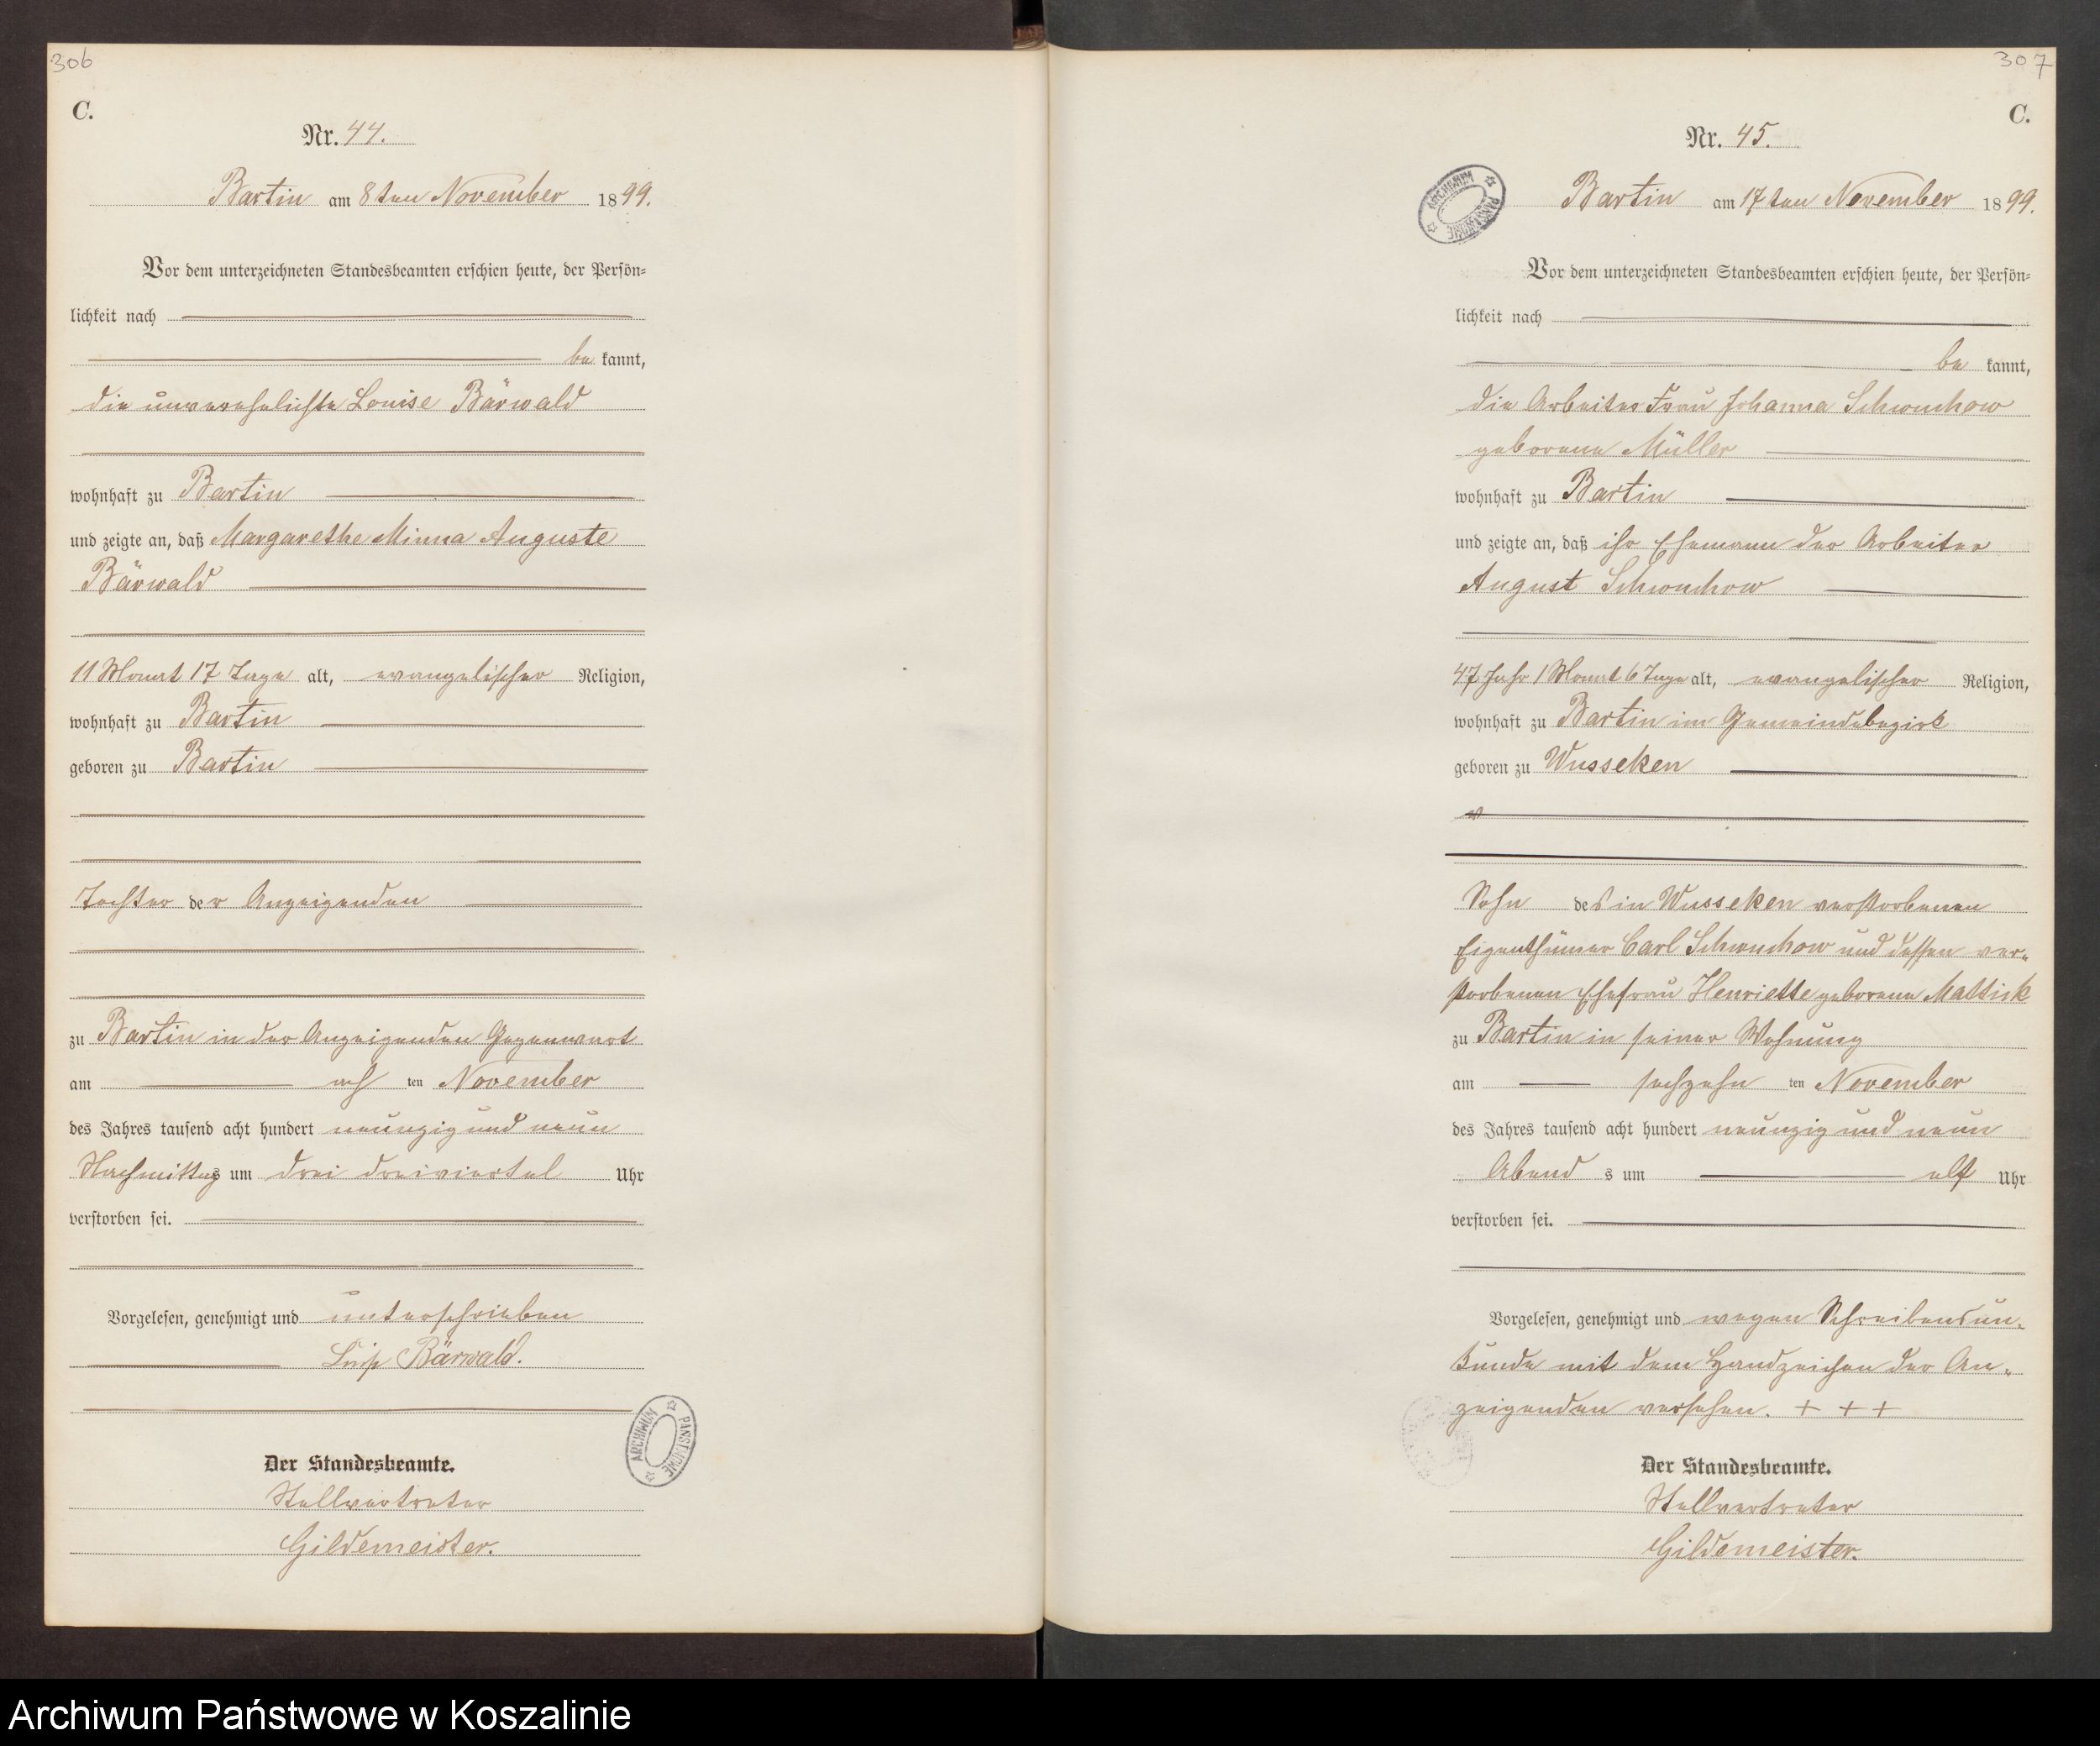 306
C.
Nr. 44.
Bartin am 8ten November 1899.
Vor dem unterzeichneten Standesbeamten erschien heute, der Persön-
lichkeit nach
be kannt,
die unverehelichte Louise Bärwald
wohnhaft zu Bartin
und zeigte an, daß Margarethe Minna Auguste
Bärwald
11 Monat 17 Tage alt, evangelischer Religion,
wohnhaft zu Bartin
geboren zu Bartin
Tochter der Anzeigenden
zu Bartin in der Anzeigenden Gegenwart
am acht ten November
des Jahres tausend acht hundert neunzig und neun
Nachmittags um drei dreiviertel Uhr
verstorben sei.
Vorgelesen, genehmigt und unterschrieben
Luise Bärwald.
Der Standesbeamte.
Stellvertreter
Gildemeister.
ARCHIWUM PAŃSTWOWE
307
C.
Nr. 45.
ARCHIWUM PAŃSTWOWE
Bartin am 17ten November 1899.
Vor dem unterzeichneten Standesbeamten erschien heute, der Persön-
lichkeit nach
be kannt,
die Arbeiter Frau Johanna Schwuchow
geborene Müller
wohnhaft zu Bartin
und zeigte an, daß ihr Ehemann der Arbeiter
August Schwuchow
47 Jahr 1 Monat 6 Tage alt, evangelischer Religion,
wohnhaft zu Bartin im Gemeindebezirk
geboren zu Wusseken
Sohn des in Wusseken verstorbenen
Eigenthümer Carl Schwuchow und dessen ver-
storbenen Ehefrau Henriette geborene Mattick
zu Bartin in seiner Wohnung
am sechzehn ten November
des Jahres tausend acht hundert neunzig und neun
Abend s um elf Uhr
verstorben sei.
Vorgelesen, genehmigt und wegen Schreibensun-
kunde mit dem Handzeichen der An-
zeigenden versehen. + + +
Der Standesbeamte.
Stellvertreter
Gildemeister.
Archiwum Państwowe w Koszalinie